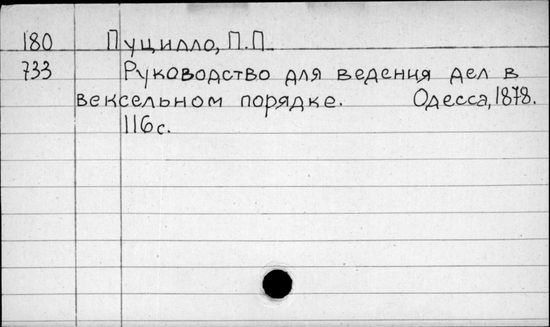 180 Пуцилло, П.П.
733 Руководство для ведения дел в
вексельном порядке. Одесса, 1878.
116 с.